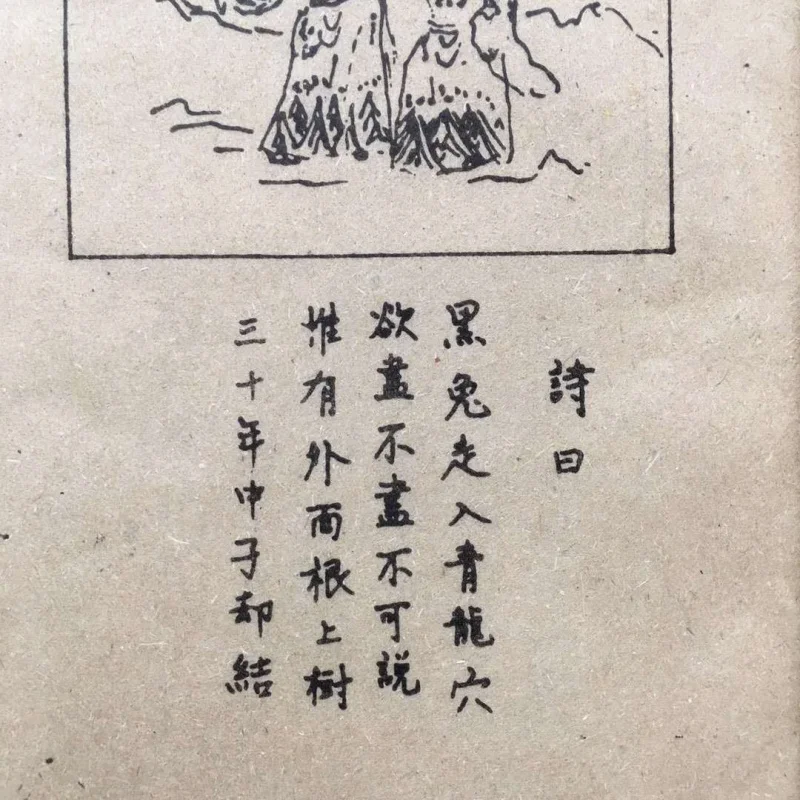 詩曰
黑兔走入青龍穴
欲盡不盡不可說
惟有外面根上樹
三十年中子却結